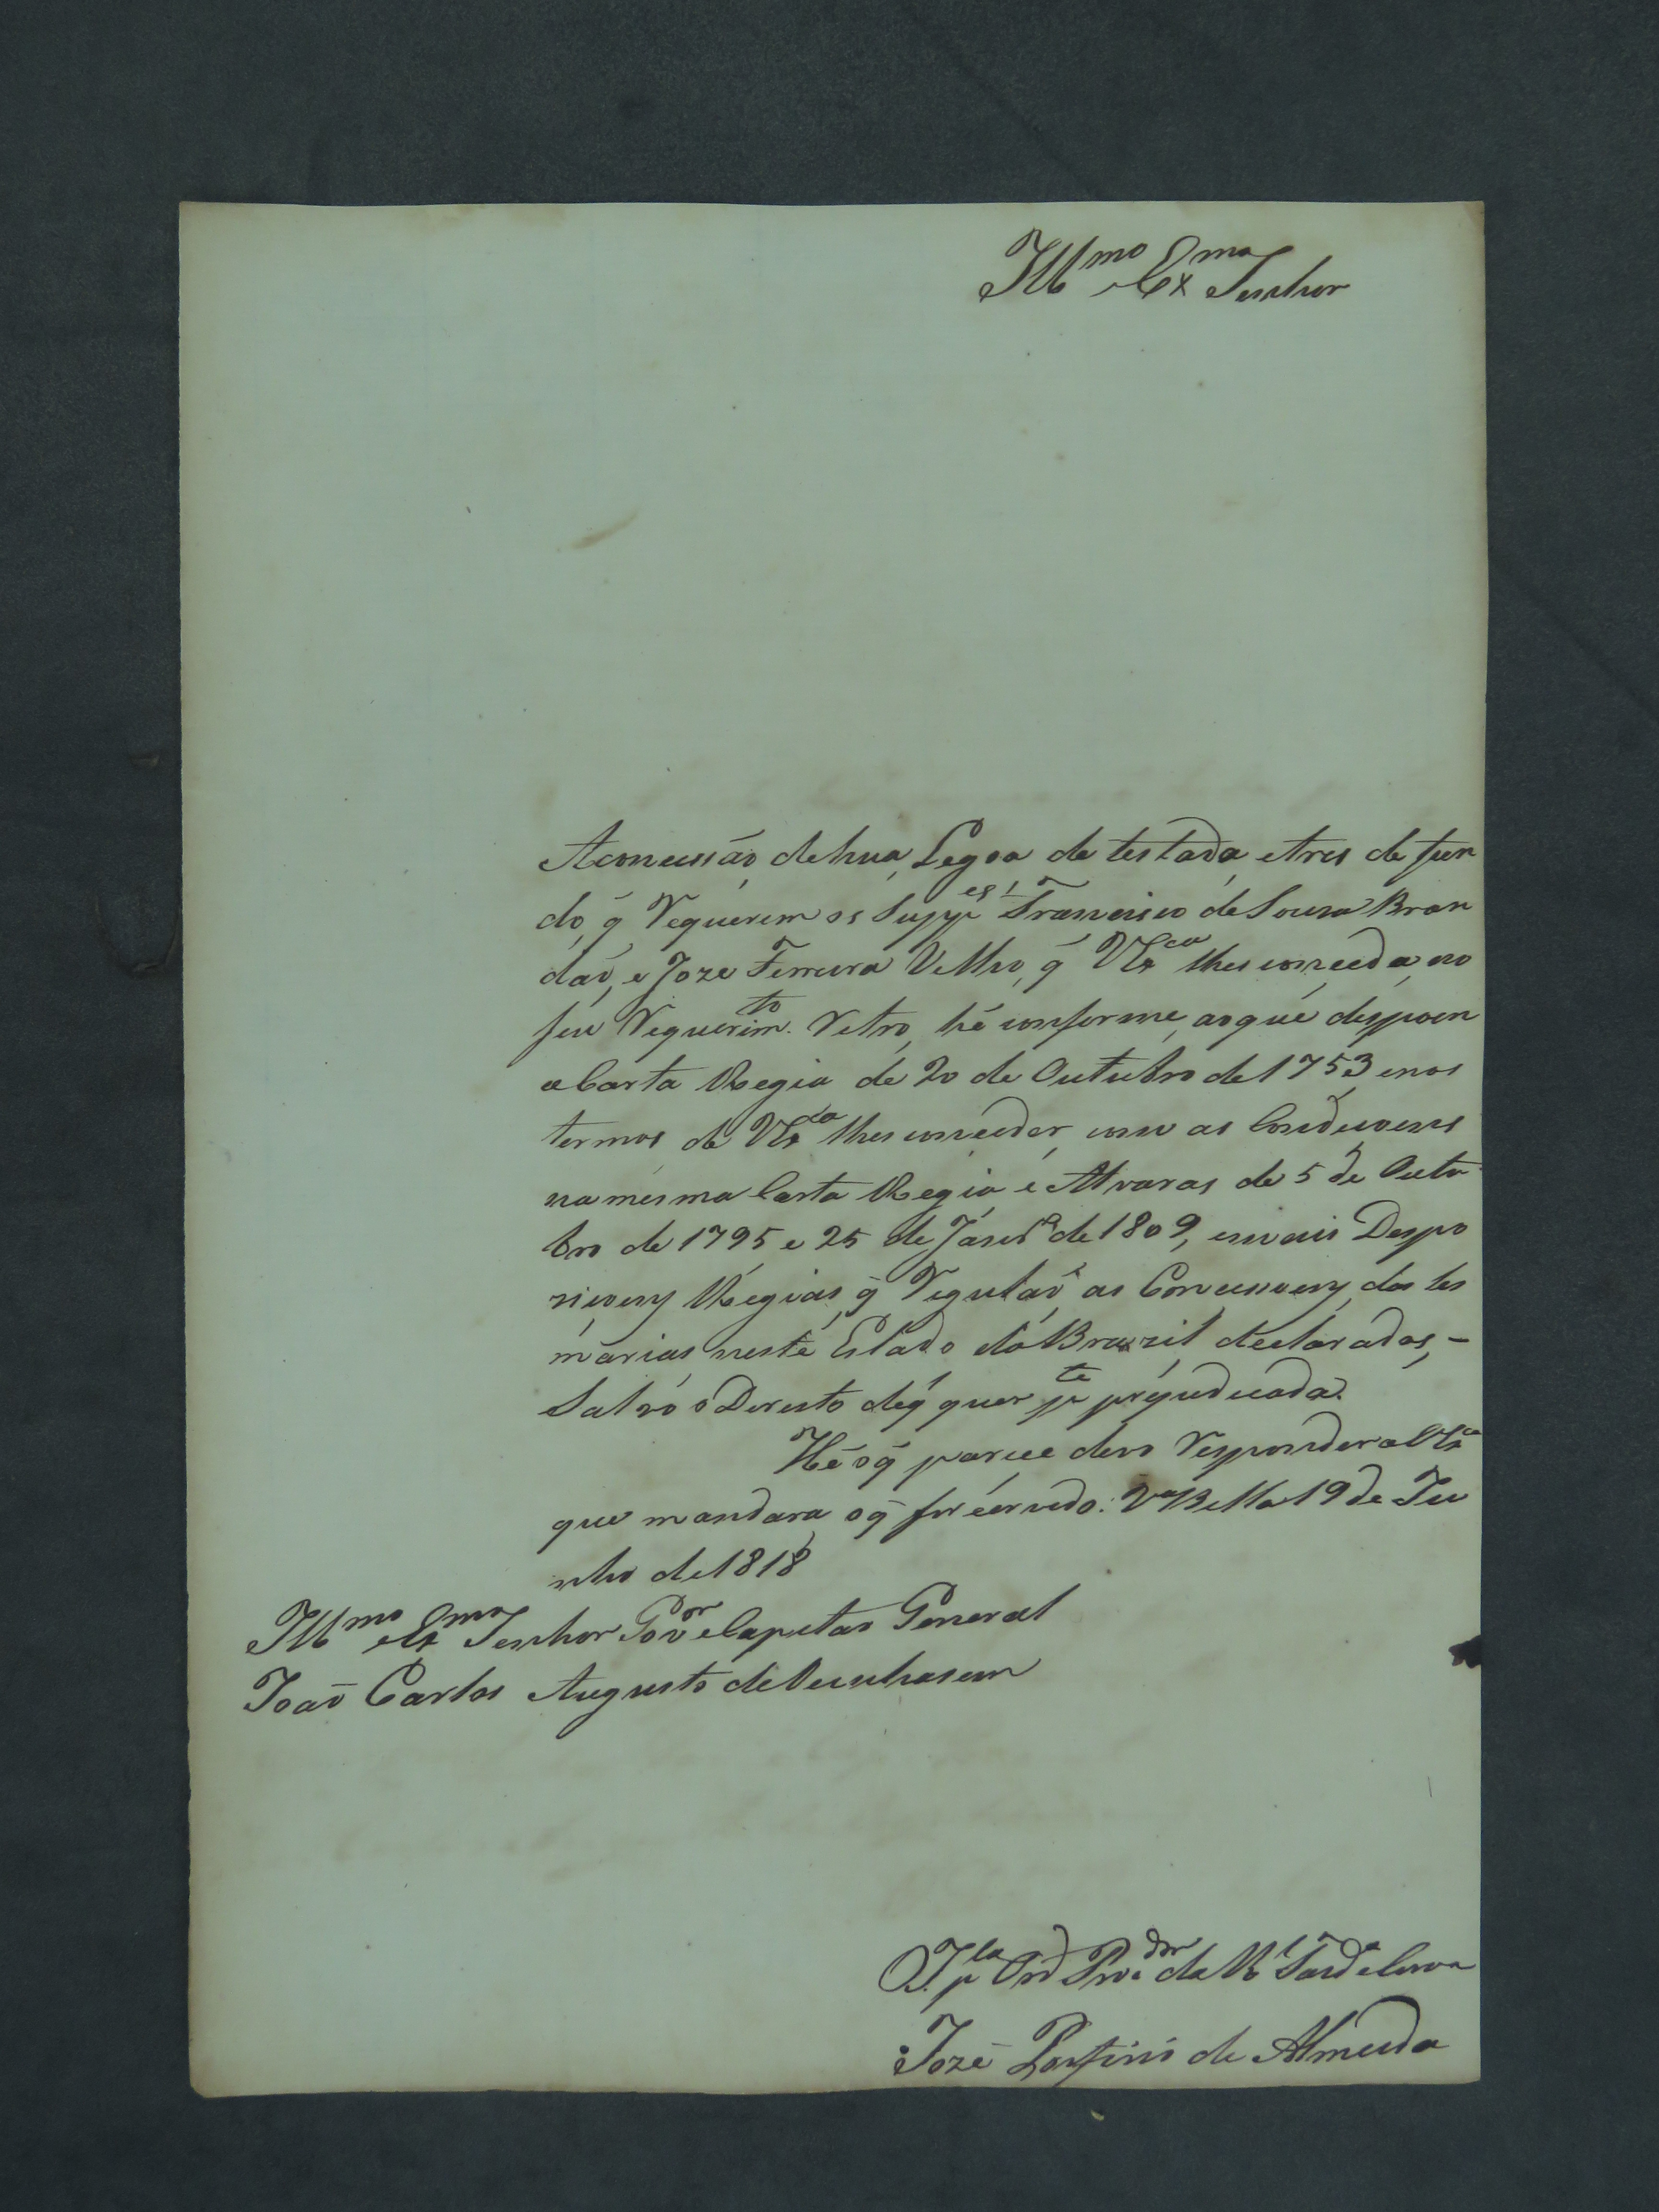 Illmo e Exmo Senhor
A concessão de hua Legoa de testada e tres de fun
do q̃ Requerem os Suppes Francisco de Sousa Bran
dão, e Joze Ferreira Velho, q̃ VExca lhes conceda no
seu Requerimto. Retro, hé conforme, aoque dispoen
a Carta Regia de 20 de Outubro de 1753 enos
termos de VExca lhes conceder, com as Condiçoens
na mesma Carta Regia e Alvaras de 5 de Outu
bro de 1795 e 25 de Janro de 1809, emais Despo
siçoens Regias, q̃ Regulaõ as Concessoens das ses
marias neste Estado do Brazil declaradas, -
Salvo o Dereito deq̃ quer pte prejudicada.
Hé oq̃ parece devo Responder a VExca
que mandara oq̃ for servido. Va Bella 19 de Ju
nho de 1818
Illmo e Exmo Senhor Govor e Capitão General
João Carlos Augusto de Oeynhasem
Provdor da Rl Fazda e Coroa
Joze Porfirio de Almeida